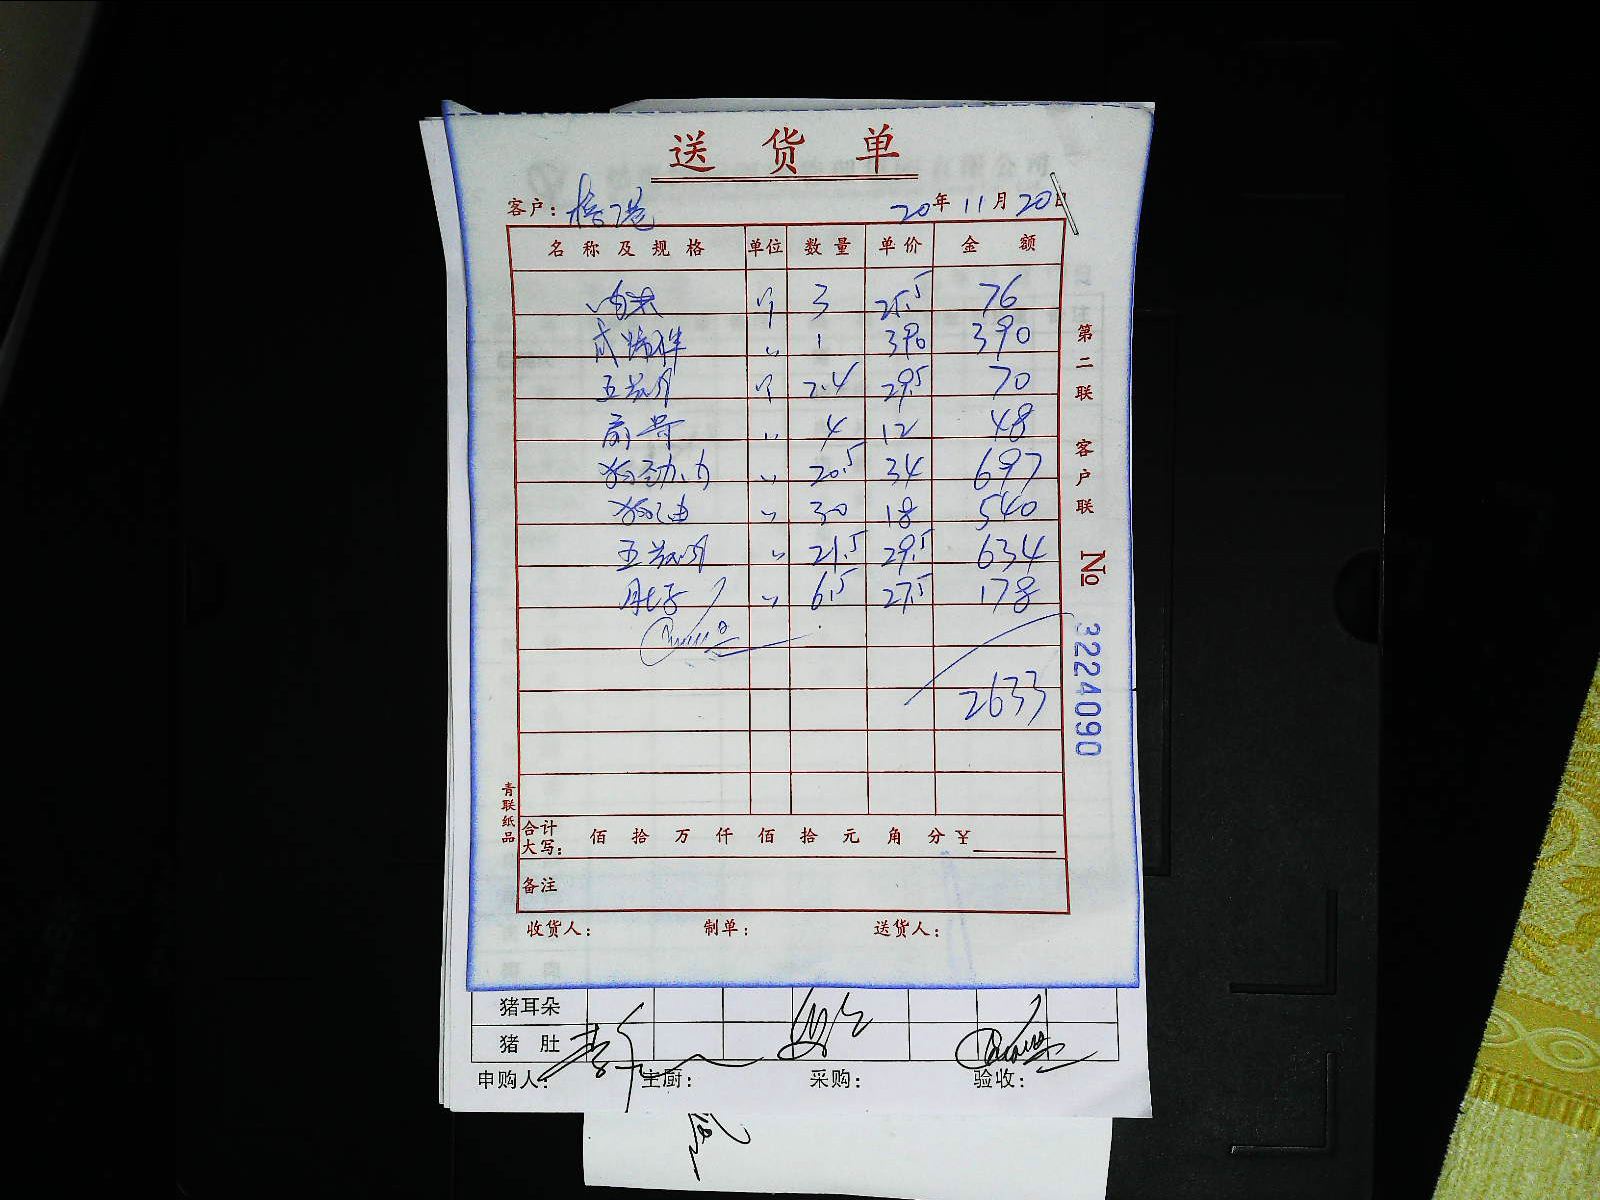 送货单
客户： 20年 11月 20日
名称及规格 单位 数量 单价 金额
3 25.5 76
〃 1 390 390
五花肉 斤 2.4 29.5 70
扇骨 〃 4 12 48
〃 20.5 34 697
〃 30 18 540
五花肉 〃 21.5 29.5 634
肚子 〃 6.5 27.5 178
2633
合计大写： 佰 拾 万 仟 佰 拾 元 角 分 ¥
备注
收货人： 制单： 送货人：
第二联 客户联
№ 3224090
青联纸品
猪耳朵
猪肚
申购人： 主厨： 采购： 验收：